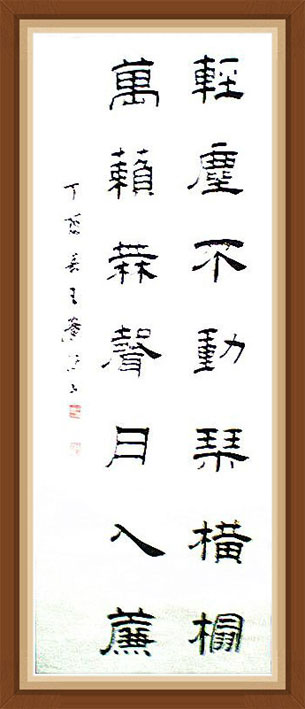 輕塵不動琴橫榻
萬籟無聲月入簾